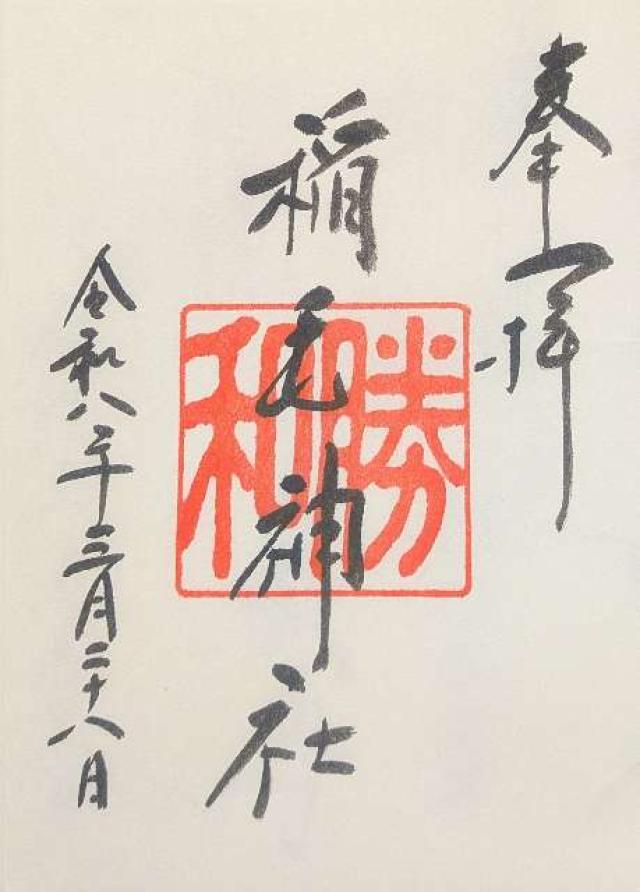 奉拝
稲毛神社
勝和
令和八年三月二十八日